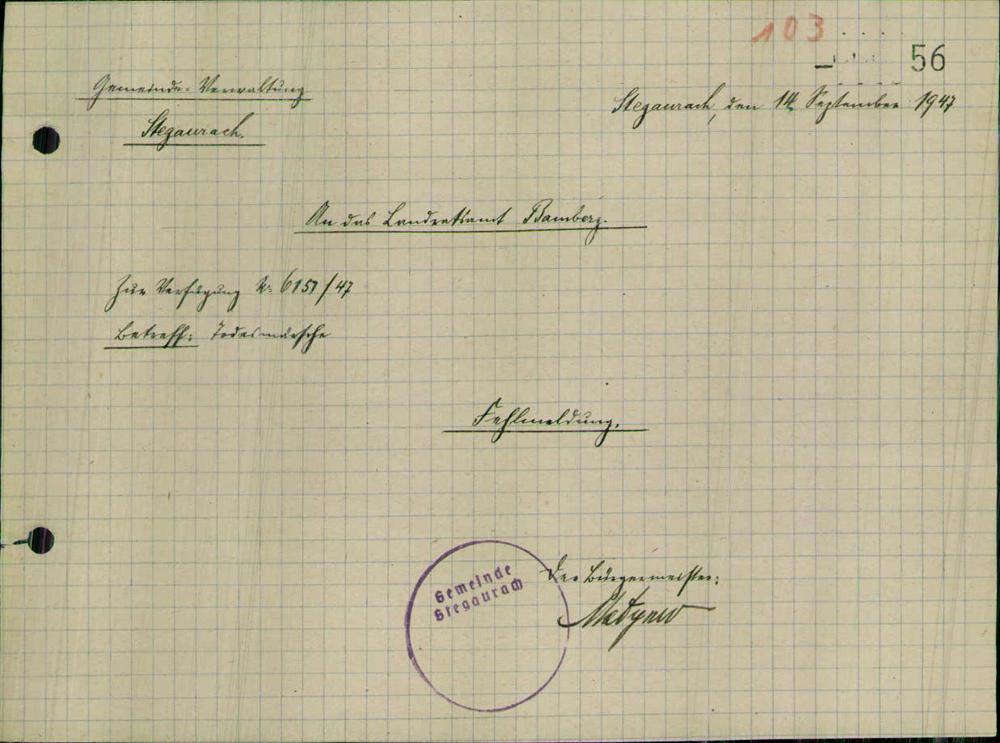 103
56
Gemeinde-Verwaltung
Stegaurach.
Stegaurach, den 14. September 1947
An das Landratsamt Bamberg.
Zur Verfügung Nr. 6151/47
Betreff: Todesmärsche
Fehlmeldung.
Der Bürgermeister:
Gemeinde
Stegaurach